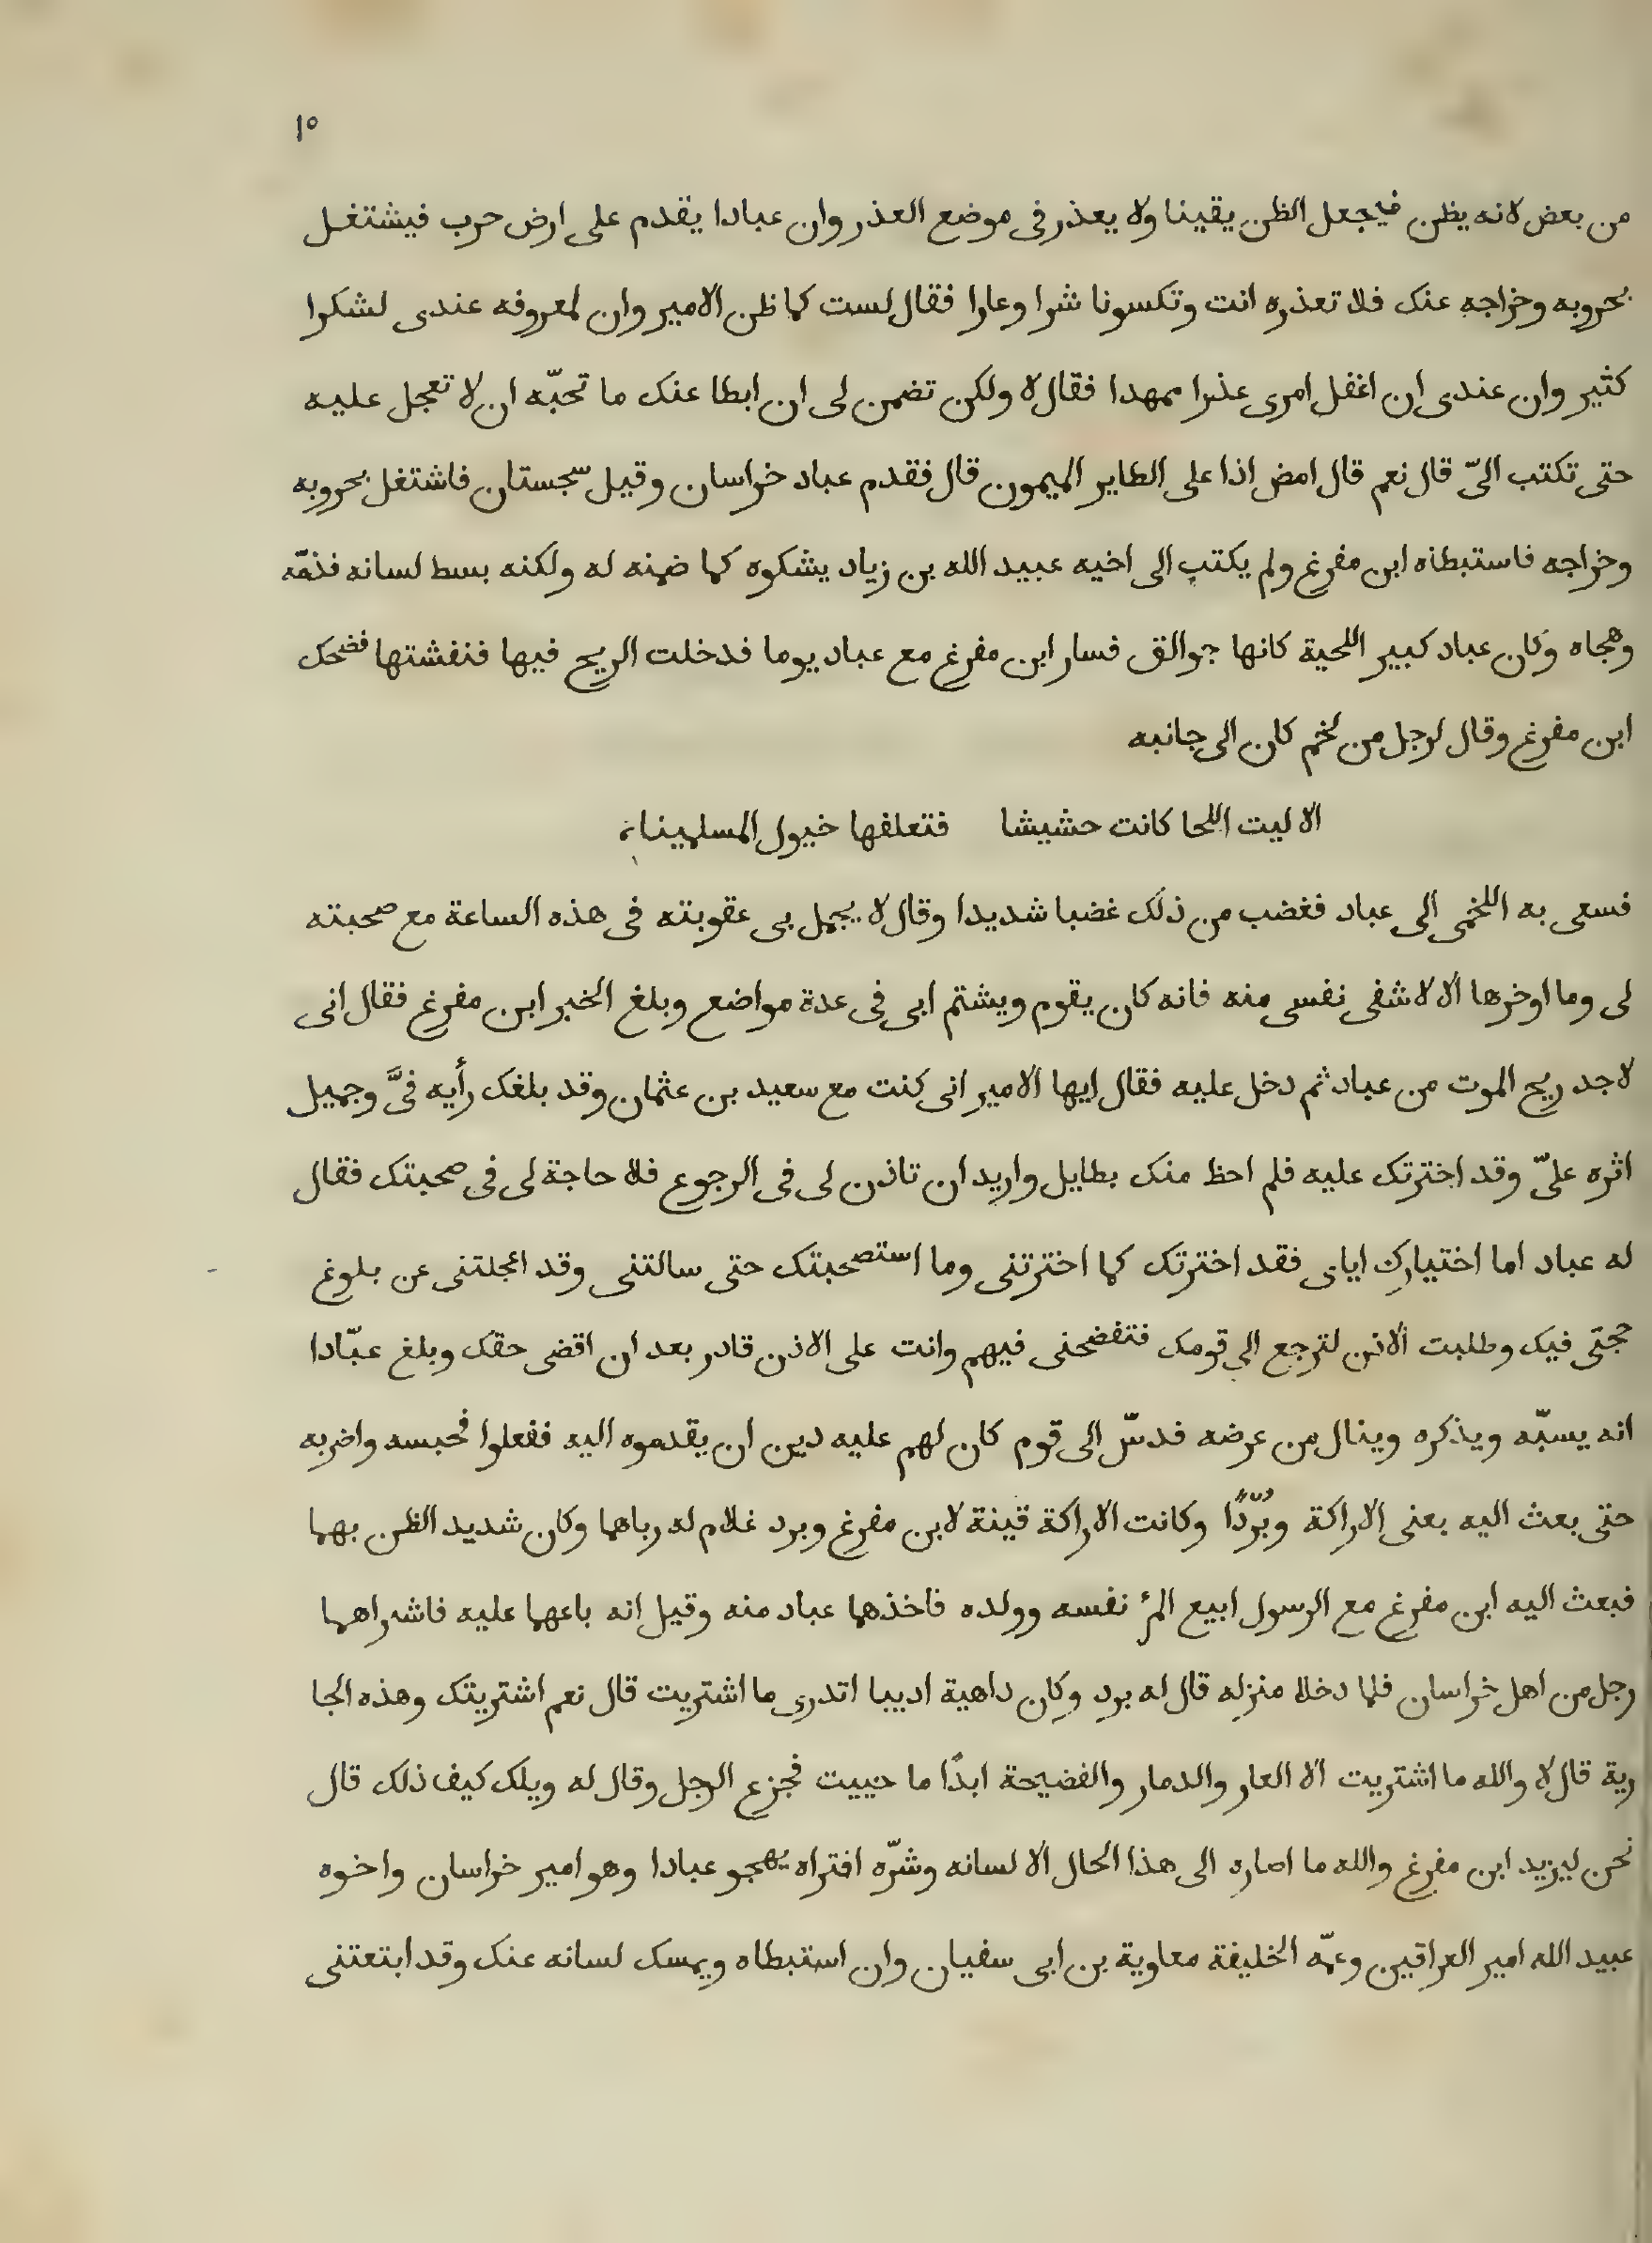 ١٥
من بعض لانه يظن فيجعل الظن يقينا ولا يعذر فى موضع العذر وان عبادا يقدم على ارض حرب فيشتغل
بحروبه وخراجه عنك فلا تعذره انت وتكسونا شرا وعارا فقال لست كما ظن الامير وان لمعروفه عندى لشكرا
كثير وان عندى ان اغفل امرى عذرا ممهدا فقال لا ولكن تضمن لى ان ابطا عنك ما تحبّه ان لا تعجل عليه
حتى تكتب الىّ قال نعم قال امض اذا على الطاير الميمون قال فقدم عباد خراسان وقيل سجستان فاشتغل بحروبه
وخراجه فاستبطاه ابن مفرغ ولم يكتب الى اخيه عبيد الله بن زياد يشكوه كما ضمنه له ولكنه بسط لسانه فذمّه
وهجاه وكان عباد كبير اللحية كانها جوالق فسار ابن مفرغ مع عباد يوما فدخلت الريح فيها فنفشتها فضحك
ابن مفرغ وقال لرجل من لخم كان الى جانبه
الا ليت اللحا كانت حشيشا فتعلفها خيول المسلمينا
فسعى به اللخمى الى عباد فغضب من ذلك غضبا شديدا وقال لا يجمل بى عقوبته فى هذه الساعة مع صحبته
لى وما اوخرها الا لاشفى نفسى منه فانه كان يقوم ويشتم ابى فى عدة مواضع وبلغ الخبر ابن مفرغ فقال انى
لاجد ريح الموت من عباد ثم دخل عليه فقال ايها الامير انى كنت مع سعيد بن عثمان وقد بلغك رأيه فىَّ وجميل
اثره علىّ وقد اخترتك عليه فلم احظ منك بطايل واريد ان تاذن لى فى الرجوع فلا حاجة لى فى صحبتك فقال
له عباد اما اختيارك اياى فقد اخترتك كما اخترتنى وما استصحبتك حتى سالتنى وقد اعجلتنى عن بلوغ
حجتى فيك وطلبت الاذن لترجع الى قومك فتفضحنى فيهم وانت على الاذن قادر بعد ان اقضى حقك وبلغ عبّادا
انه يسبّه ويذكره وينال من عرضه فدسّ الى قوم كان لهم عليه دين ان يقدموه اليه ففعلوا فحبسه واضربه
حتى بعث اليه بعنى الاراكة وبُرّدًا وكانت الاراكة قينة لابن مفرغ وبرد غلام له رباهما وكان شديد الظن بهما
فبعث اليه ابن مفرغ مع الرسول ابيع المرٔ نفسه وولده فاخذهما عباد منه وقيل انه باعهما عليه فاشراهما
رجل من اهل خراسان فلما دخلا منزله قال له برد وكان داهية اديبا اتدرى ما اشتريت قال نعم اشتريتك وهذه الجا
رية قال لا والله ما اشتريت الا العار والدمار والفضيحة ابدًا ما حييت فجزع الرجل وقال له ويلك كيف ذلك قال
نحن ليزيد ابن مفرغ والله ما اصاره الى هذا الحال الا لسانه وشرّه افتراه يهجو عبادا وهو امير خراسان واخوه
عبيد الله امير العراقين وعمّه الخليفة معاوية بن ابى سفيان وان استبطاه ويمسك لسانه عنك وقد ابتعتنى